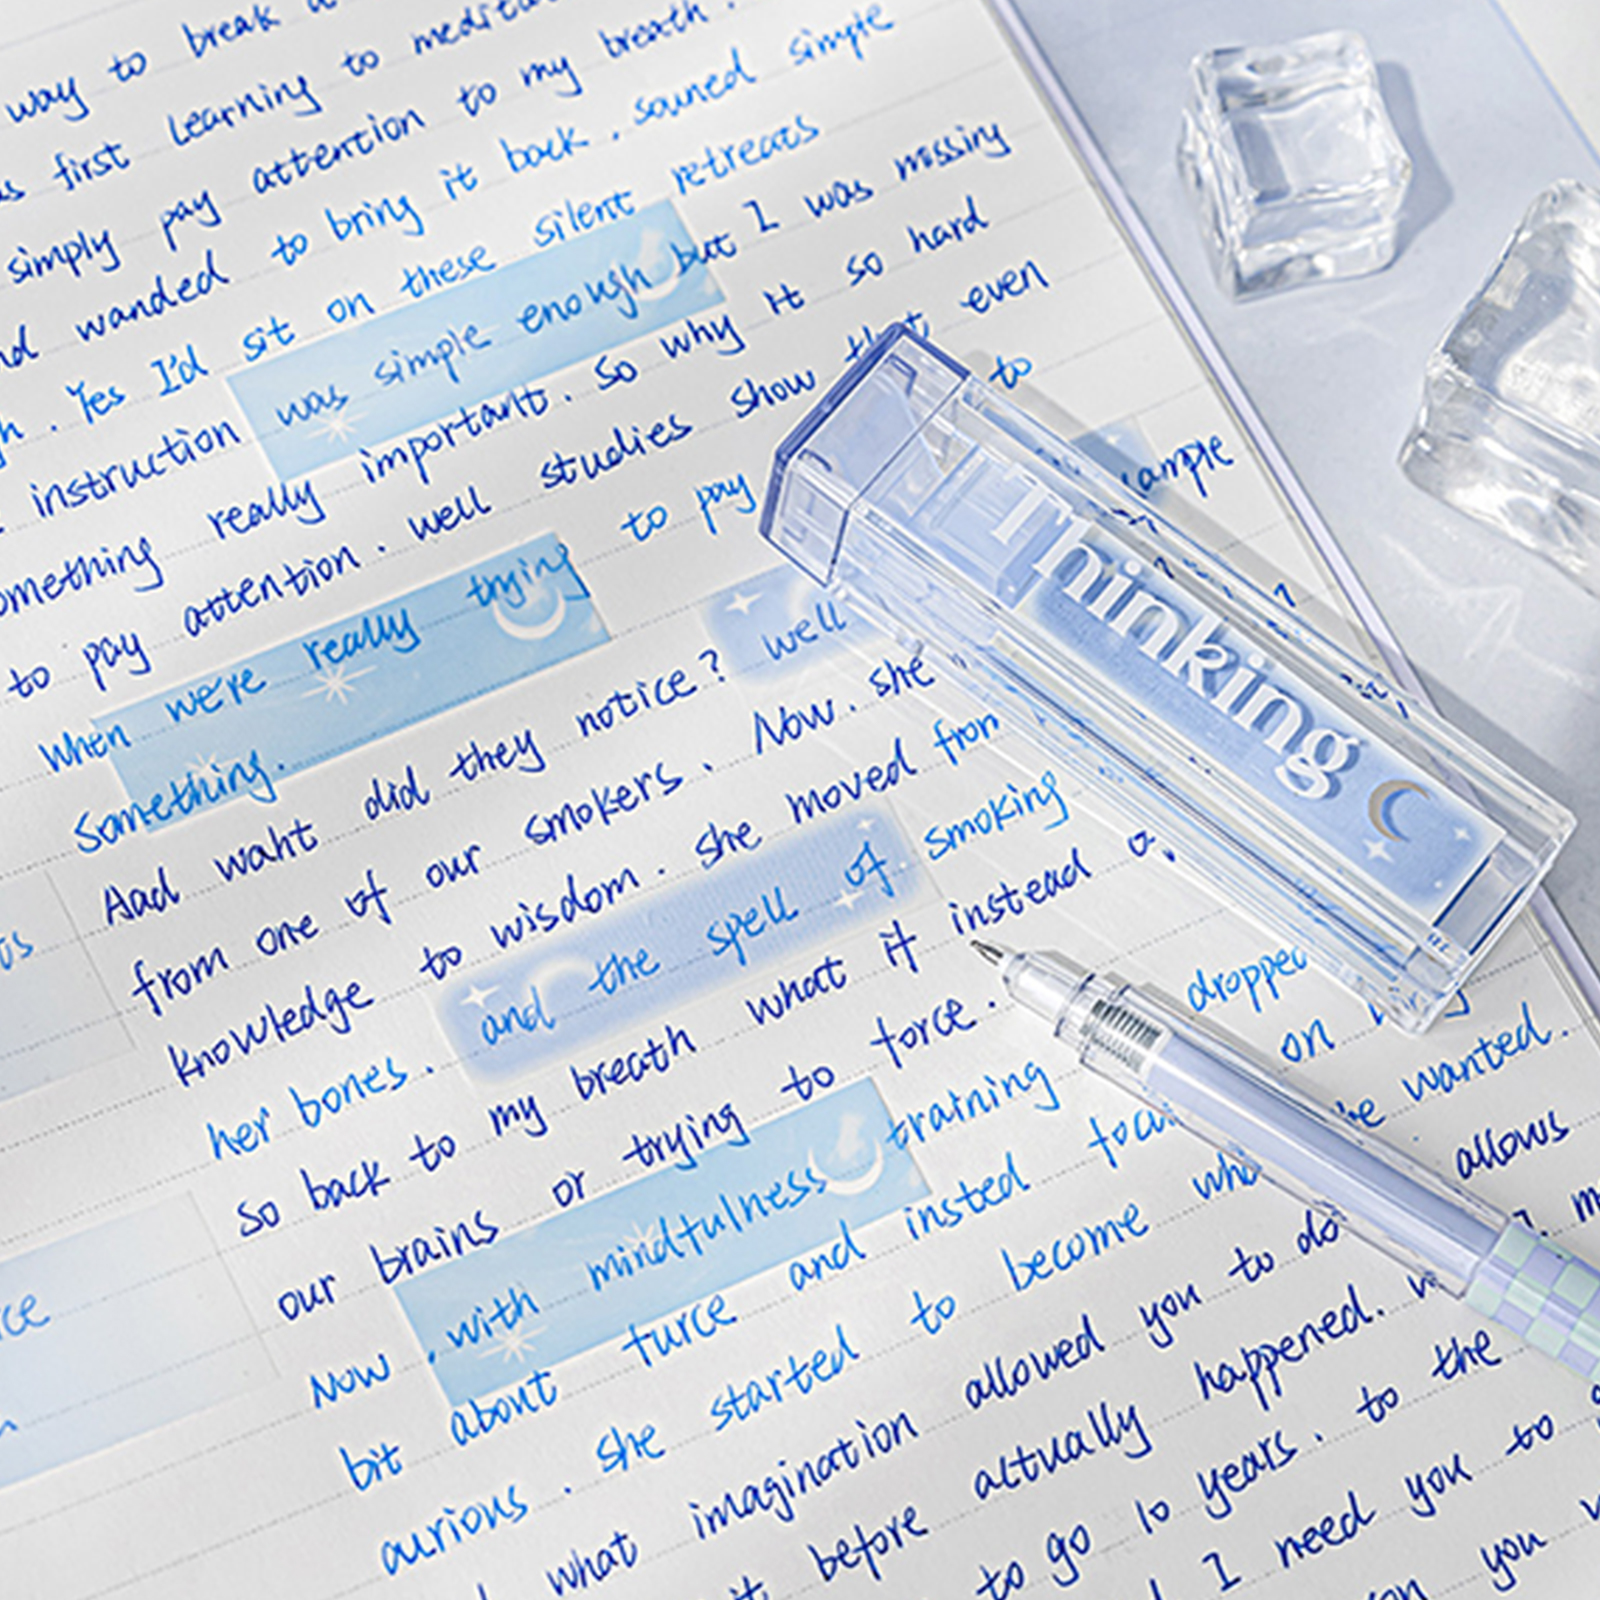 way to break a
first learning to
simply pay attention to my breath.
wanded to bring it back. souned simple
Yes I'd sit on these silent retreats
instruction was simple enough but I was missing
something really important. So why it so hard
to pay attention. well studies show that even
When we're really trying to pay to
Something.
Aad waht did they notice? well
from one of our smokers. Now. she
knowledge to wisdom. she moved
her bones. and the spell of smoking
So back to my breath what if instead
our brains or trying to force.
Now, with mindfulness training dropped
bit about turce and insted on
aurious. she started to become wanted.
what imagination allowed you to do allows
before actually happened.
to go 10 years. to the
I need you to
you
Thinking